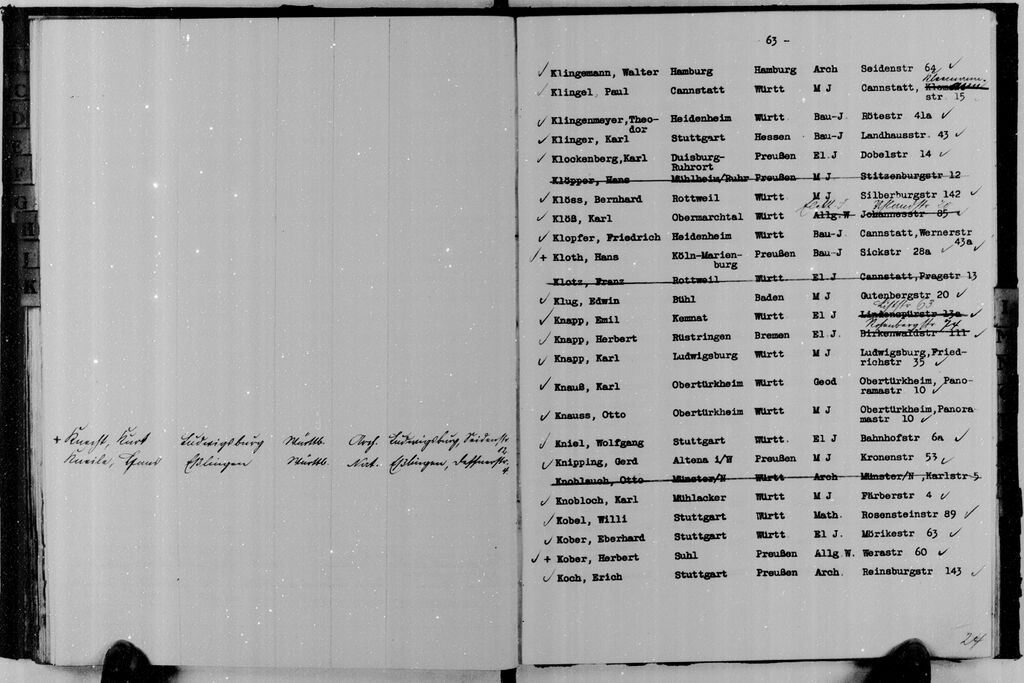 + Knecht, Kurt Ludwigsburg Württb. Arch. Ludwigsburg, Seidenstr. 12
Kneile, Ernst Eßlingen Württb. Eßlingen,
63 -
✓ Klingemann, Walter Hamburg Hamburg Arch Seidenstr 64 ✓
✓ Klingel, Paul Cannstatt Württ M J Cannstatt,
str 15
✓ Klingenmeyer,Theo- Heidenheim Württ Bau-J Rötestr 41a ✓
dor
✓ Klinger, Karl Stuttgart Hessen Bau-J Landhausstr. 43 ✓
✓ Klockenberg,Karl Duisburg- Preußen El.J Dobelstr 14 ✓
Ruhrort
Klöpper, Hans Mühlheim/Ruhr Preußen M J Stitzenburgstr 12
✓ Klöss, Bernhard Rottweil Württ M J Silberburgstr 142 ✓
✓ Klöß, Karl Obermarchtal Württ Allg.W Johannesstr 85 ✓
✓ Klopfer, Friedrich Heidenheim Württ Bau-J Cannstatt,Wernerstr
43a ✓
✓ + Kloth, Hans Köln-Marien- Preußen Bau-J Sickstr 28a ✓
burg
Klotz, Franz Rottweil Württ El J Cannstatt,Pragstr 13
✓ Klug, Edwin Bühl Baden M J Gutenbergstr 20 ✓
✓ Knapp, Emil Kemnat Württ El J Lindenspürstr 13a ✓
Rotenbergstr 74
✓ Knapp, Herbert Rüstringen Bremen El J. Birkenwaldstr 111 ✓
✓ Knapp, Karl Ludwigsburg Württ M J Ludwigsburg,Fried-
richstr 35 ✓
✓ Knauß, Karl Obertürkheim Württ Geod Obertürkheim, Pano-
ramastr 10 ✓
✓ Knauss, Otto Obertürkheim Württ M J Obertürkheim,Panora
mastr 10 ✓
✓ Kniel, Wolfgang Stuttgart Württ El J Bahnhofstr 6a ✓
✓ Knipping, Gerd Altena i/W Preußen M J Kronenstr 53 ✓
Knoblauch, Otto Münster/N Württ Arch Münster/N ,Karlstr 5
✓ Knobloch, Karl Mühlacker Württ M J Färberstr 4 ✓
✓ Kobel, Willi Stuttgart Württ Math. Rosensteinstr 89 ✓
✓ Kober, Eberhard Stuttgart Württ El J. Mörikestr 63 ✓
✓ + Kober, Herbert Suhl Preußen Allg W. Werastr 60 ✓
✓ Koch, Erich Stuttgart Preußen Arch. Reinsburgstr 143 ✓
24